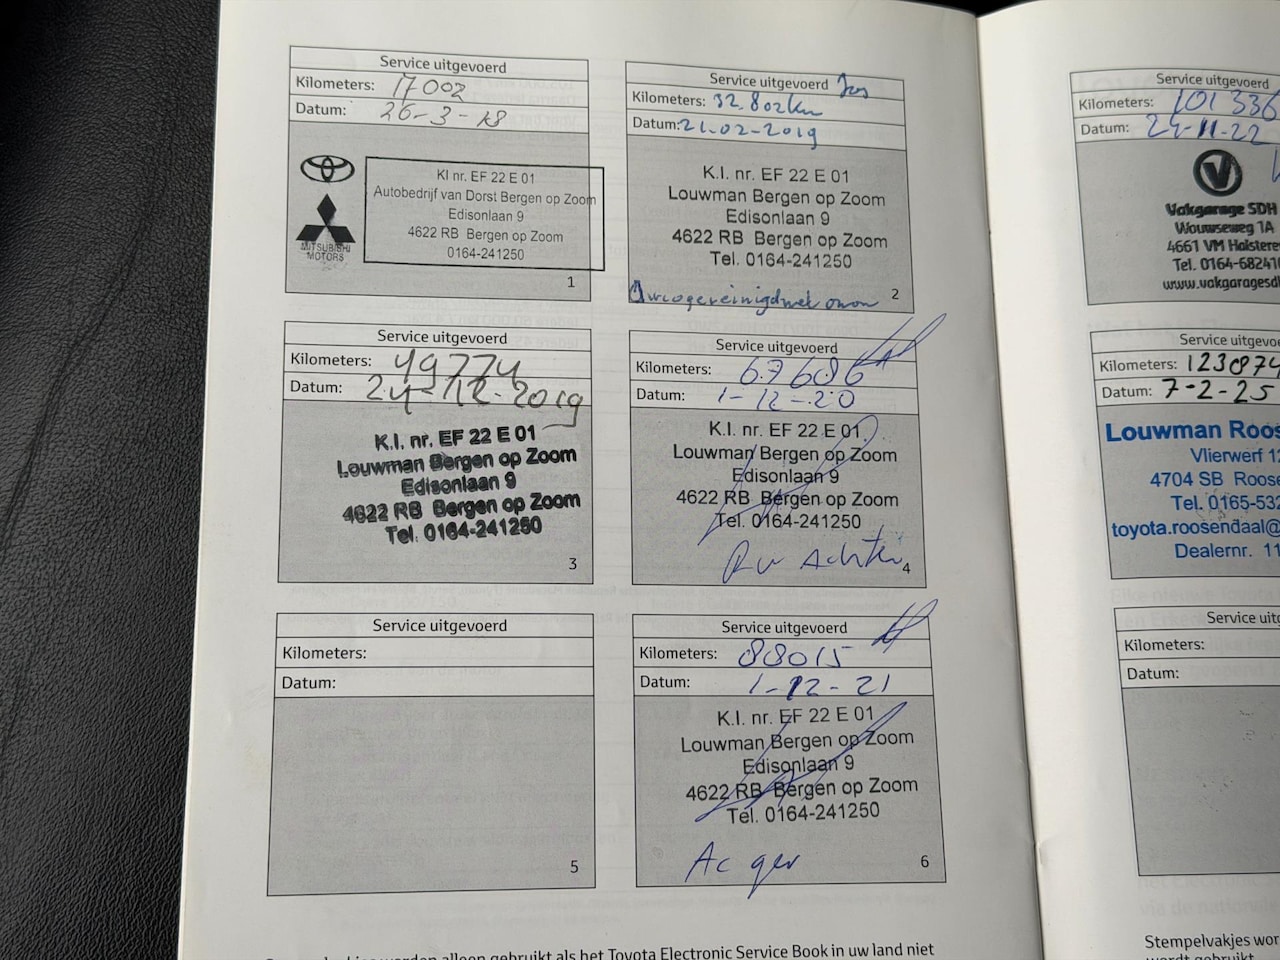 Service uitgevoerd
Kilometers: 17002
Datum: 26-3-18
MITSUBISHI
MOTORS
KI nr. EF 22 E 01
Autobedrijf van Dorst Bergen op Zoom
Edisonlaan 9
4622 RB Bergen op Zoom
0164-241250
1
Service uitgevoerd
Kilometers: 32.802km
Datum: 21-02-2019
K.I. nr. EF 22 E 01
Louwman Bergen op Zoom
Edisonlaan 9
4622 RB Bergen op Zoom
Tel. 0164-241250
2
Service uitgevoerd
Kilometers: 49774
Datum: 24-12-2019
K.I. nr. EF 22 E 01
Louwman Bergen op Zoom
Edisonlaan 9
4622 RB Bergen op Zoom
Tel. 0164-241250
3
Service uitgevoerd
Kilometers: 67686
Datum: 1-12-20
K.I. nr. EF 22 E 01
Louwman Bergen op Zoom
Edisonlaan 9
4622 RB Bergen op Zoom
Tel. 0164-241250
Achter
4
Service uitgevoerd
Kilometers:
Datum:
5
Service uitgevoerd
Kilometers: 88015
Datum: 1-12-21
K.I. nr. EF 22 E 01
Louwman Bergen op Zoom
Edisonlaan 9
4622 RB Bergen op Zoom
Tel. 0164-241250
Ac ger
6
worden alleen gebruikt als het Toyota Electronic Service Book in uw land niet
Service uitgevoerd
Kilometers: 101336
Datum: 24-11-22
V
Vakgarage SDH
Wouwseweg 1A
4661 VM Halstere
Tel. 0164-68241
www.vakgaragesd
Service uitgevoe
Kilometers: 123874
Datum: 7-2-25
Louwman Roos
Vlierwerf 12
4704 SB Roose
Tel. 0165-532
toyota.roosendaal@
Dealernr. 11
Service uitg
Kilometers:
Datum:
Stempelvakjes wor
wordt gebruikt.